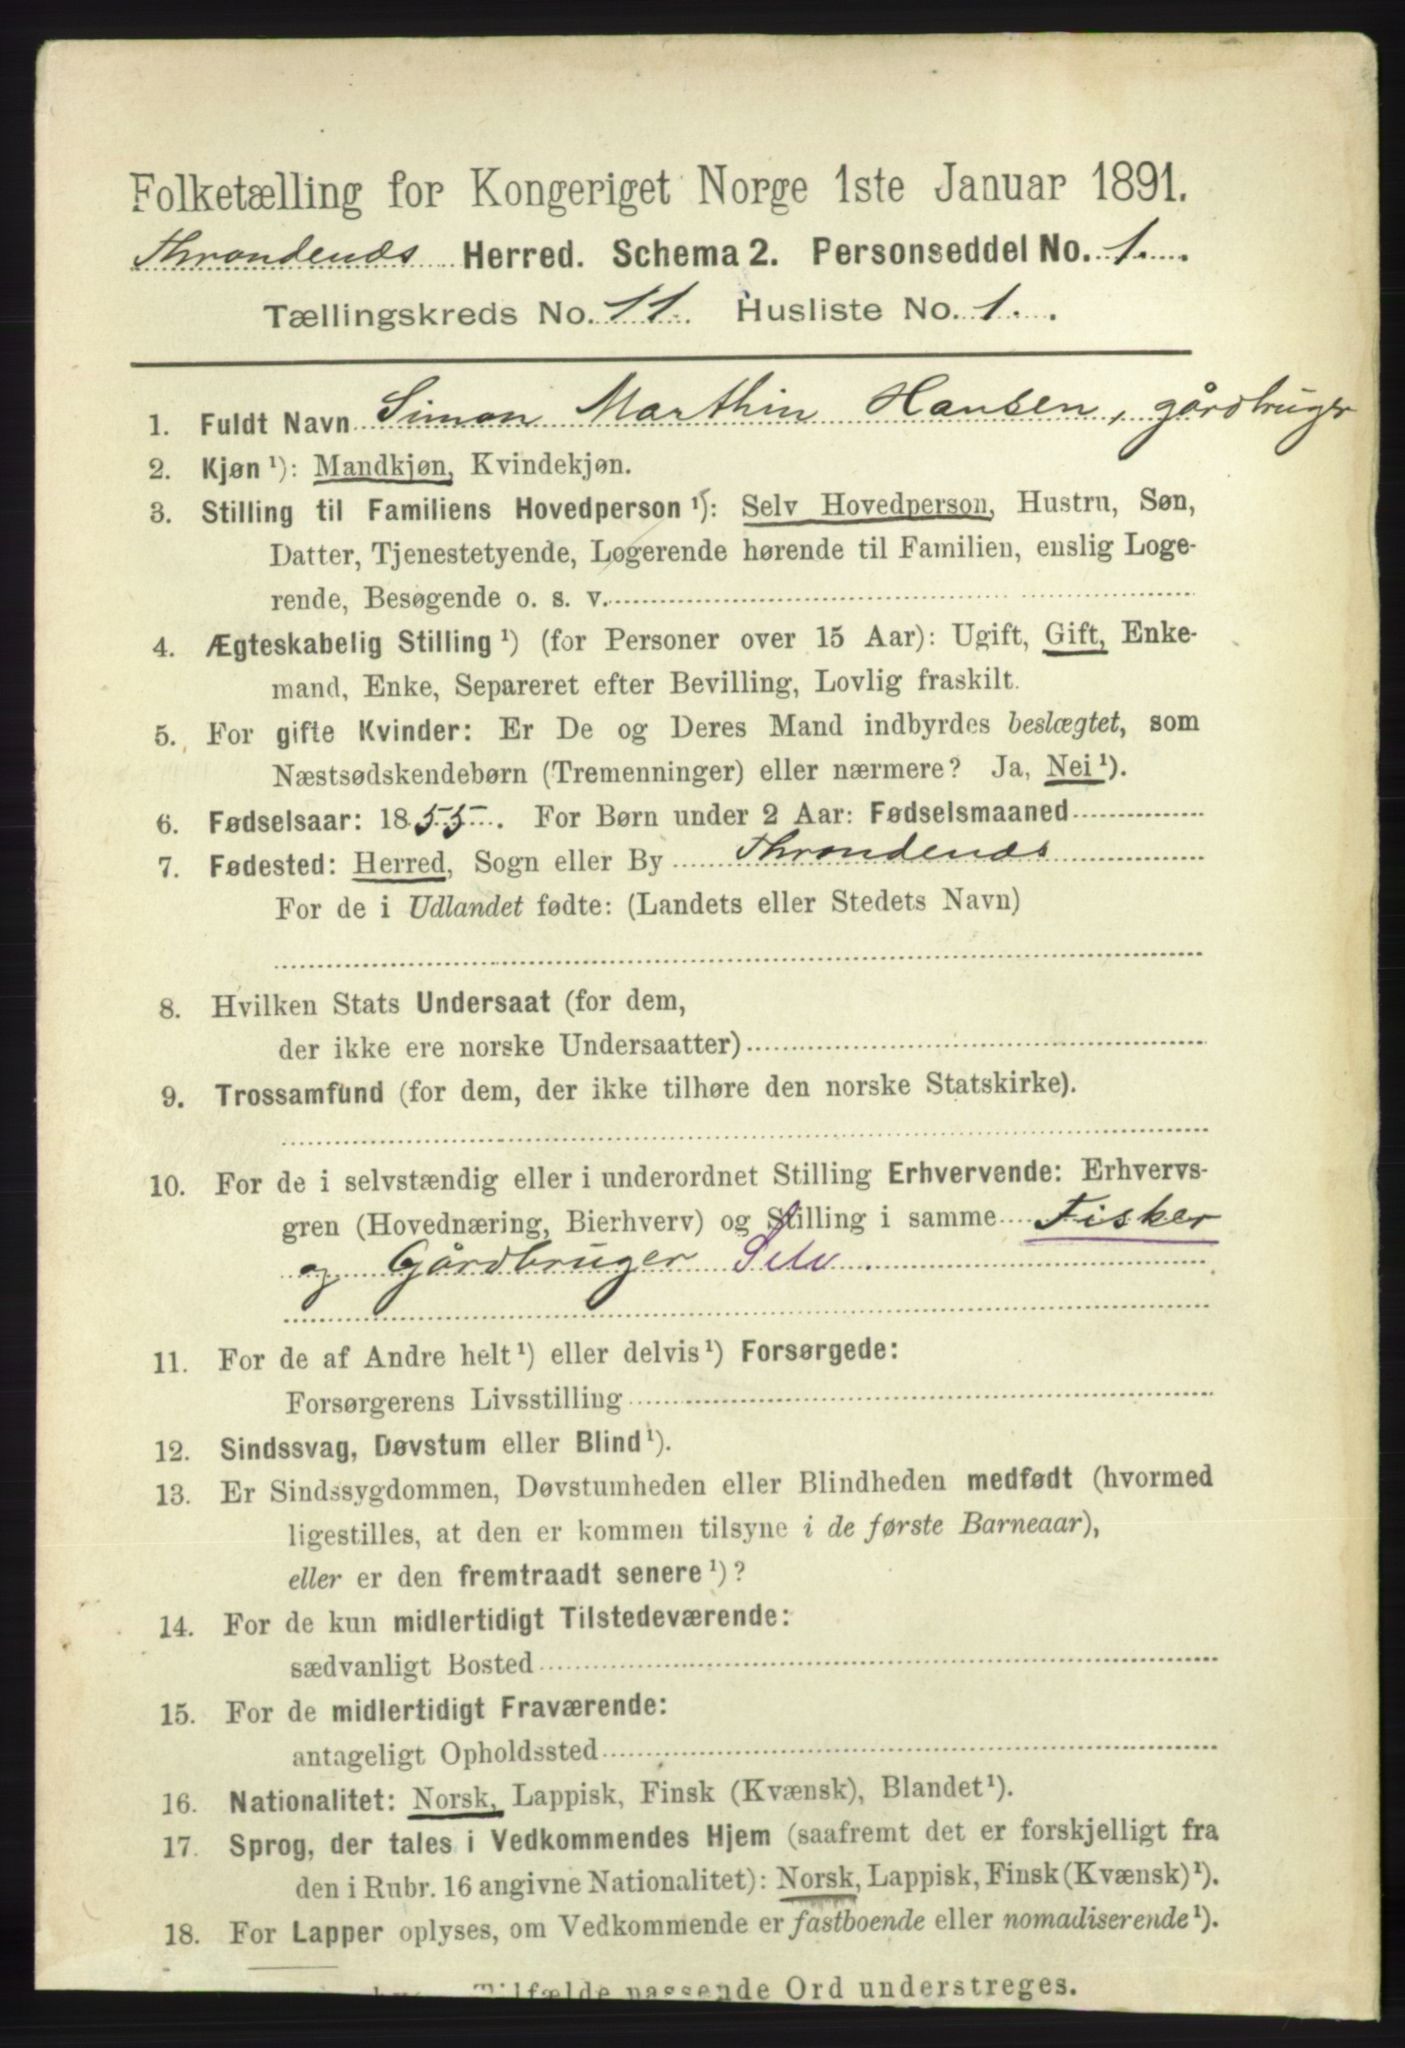 Folketælling for Kongeriget Norge 1ste Januar 1891.
Throndenæs Herred. Schema 2. Personseddel No. 1.
Tællingskreds No. 11. Husliste No. 1.
1. Fuldt Navn Simon Marthin Hansen, gårdbruger
2. Kjøn ¹): Mandkjøn, Kvindekjøn.
3. Stilling til Familiens Hovedperson ¹): Selv Hovedperson, Hustru, Søn,
Datter, Tjenestetyende, Logerende hørende til Familien, enslig Loge-
rende, Besøgende o. s. v.
4. Ægteskabelig Stilling ¹) (for Personer over 15 Aar): Ugift, Gift, Enke-
mand, Enke, Separeret efter Bevilling, Lovlig fraskilt.
5. For gifte Kvinder: Er De og Deres Mand indbyrdes beslægtet, som
Næstsødskendebørn (Tremenninger) eller nærmere? Ja, Nei ¹).
6. Fødselsaar: 1855. For Børn under 2 Aar: Fødselsmaaned
7. Fødested: Herred, Sogn eller By Throndenæs
For de i Udlandet fødte: (Landets eller Stedets Navn)
8. Hvilken Stats Undersaat (for dem,
der ikke ere norske Undersaatter)
9. Trossamfund (for dem, der ikke tilhøre den norske Statskirke).
10. For de i selvstændig eller i underordnet Stilling Erhvervende: Erhvervs-
gren (Hovednæring, Bierhverv) og Stilling i samme Fisker
og Gårdbruger Selv.
11. For de af Andre helt ¹) eller delvis ¹) Forsørgede:
Forsørgerens Livsstilling
12. Sindssvag, Døvstum eller Blind ¹).
13. Er Sindssygdommen, Døvstumheden eller Blindheden medfødt (hvormed
ligestilles, at den er kommen tilsyne i de første Barneaar),
eller er den fremtraadt senere ¹)?
14. For de kun midlertidigt Tilstedeværende:
sædvanligt Bosted
15. For de midlertidigt Fraværende:
antageligt Opholdssted
16. Nationalitet: Norsk, Lappisk, Finsk (Kvænsk), Blandet ¹).
17. Sprog, der tales i Vedkommendes Hjem (saafremt det er forskjelligt fra
den i Rubr. 16 angivne Nationalitet): Norsk, Lappisk, Finsk (Kvænsk) ¹).
18. For Lapper oplyses, om Vedkommende er fastboende eller nomadiserende ¹).
Tilfælde passende Ord understreges.